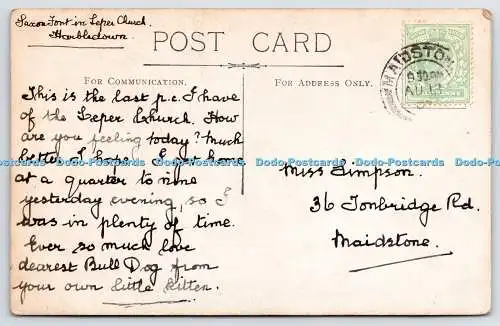 Saxon Font in Leper Church,
Harbledown.
POST CARD
FOR COMMUNICATION.
FOR ADDRESS ONLY.
MAIDSTONE
9 30 PM
AU 13
This is the last p.c. I have
of the Leper Church. How
are you feeling today? Much
better I hope. I got home
at a quarter to nine
yesterday evening, so I
was in plenty of time.
Ever so much love
dearest Bull Dog from
your own little kitten.
Miss Simpson.
36 Tonbridge Rd.
Maidstone.
Dodo-Postcards Dodo-Postcards Dodo-Postcards Dodo-Postcards Dodo-Postcards Dodo-Postcards